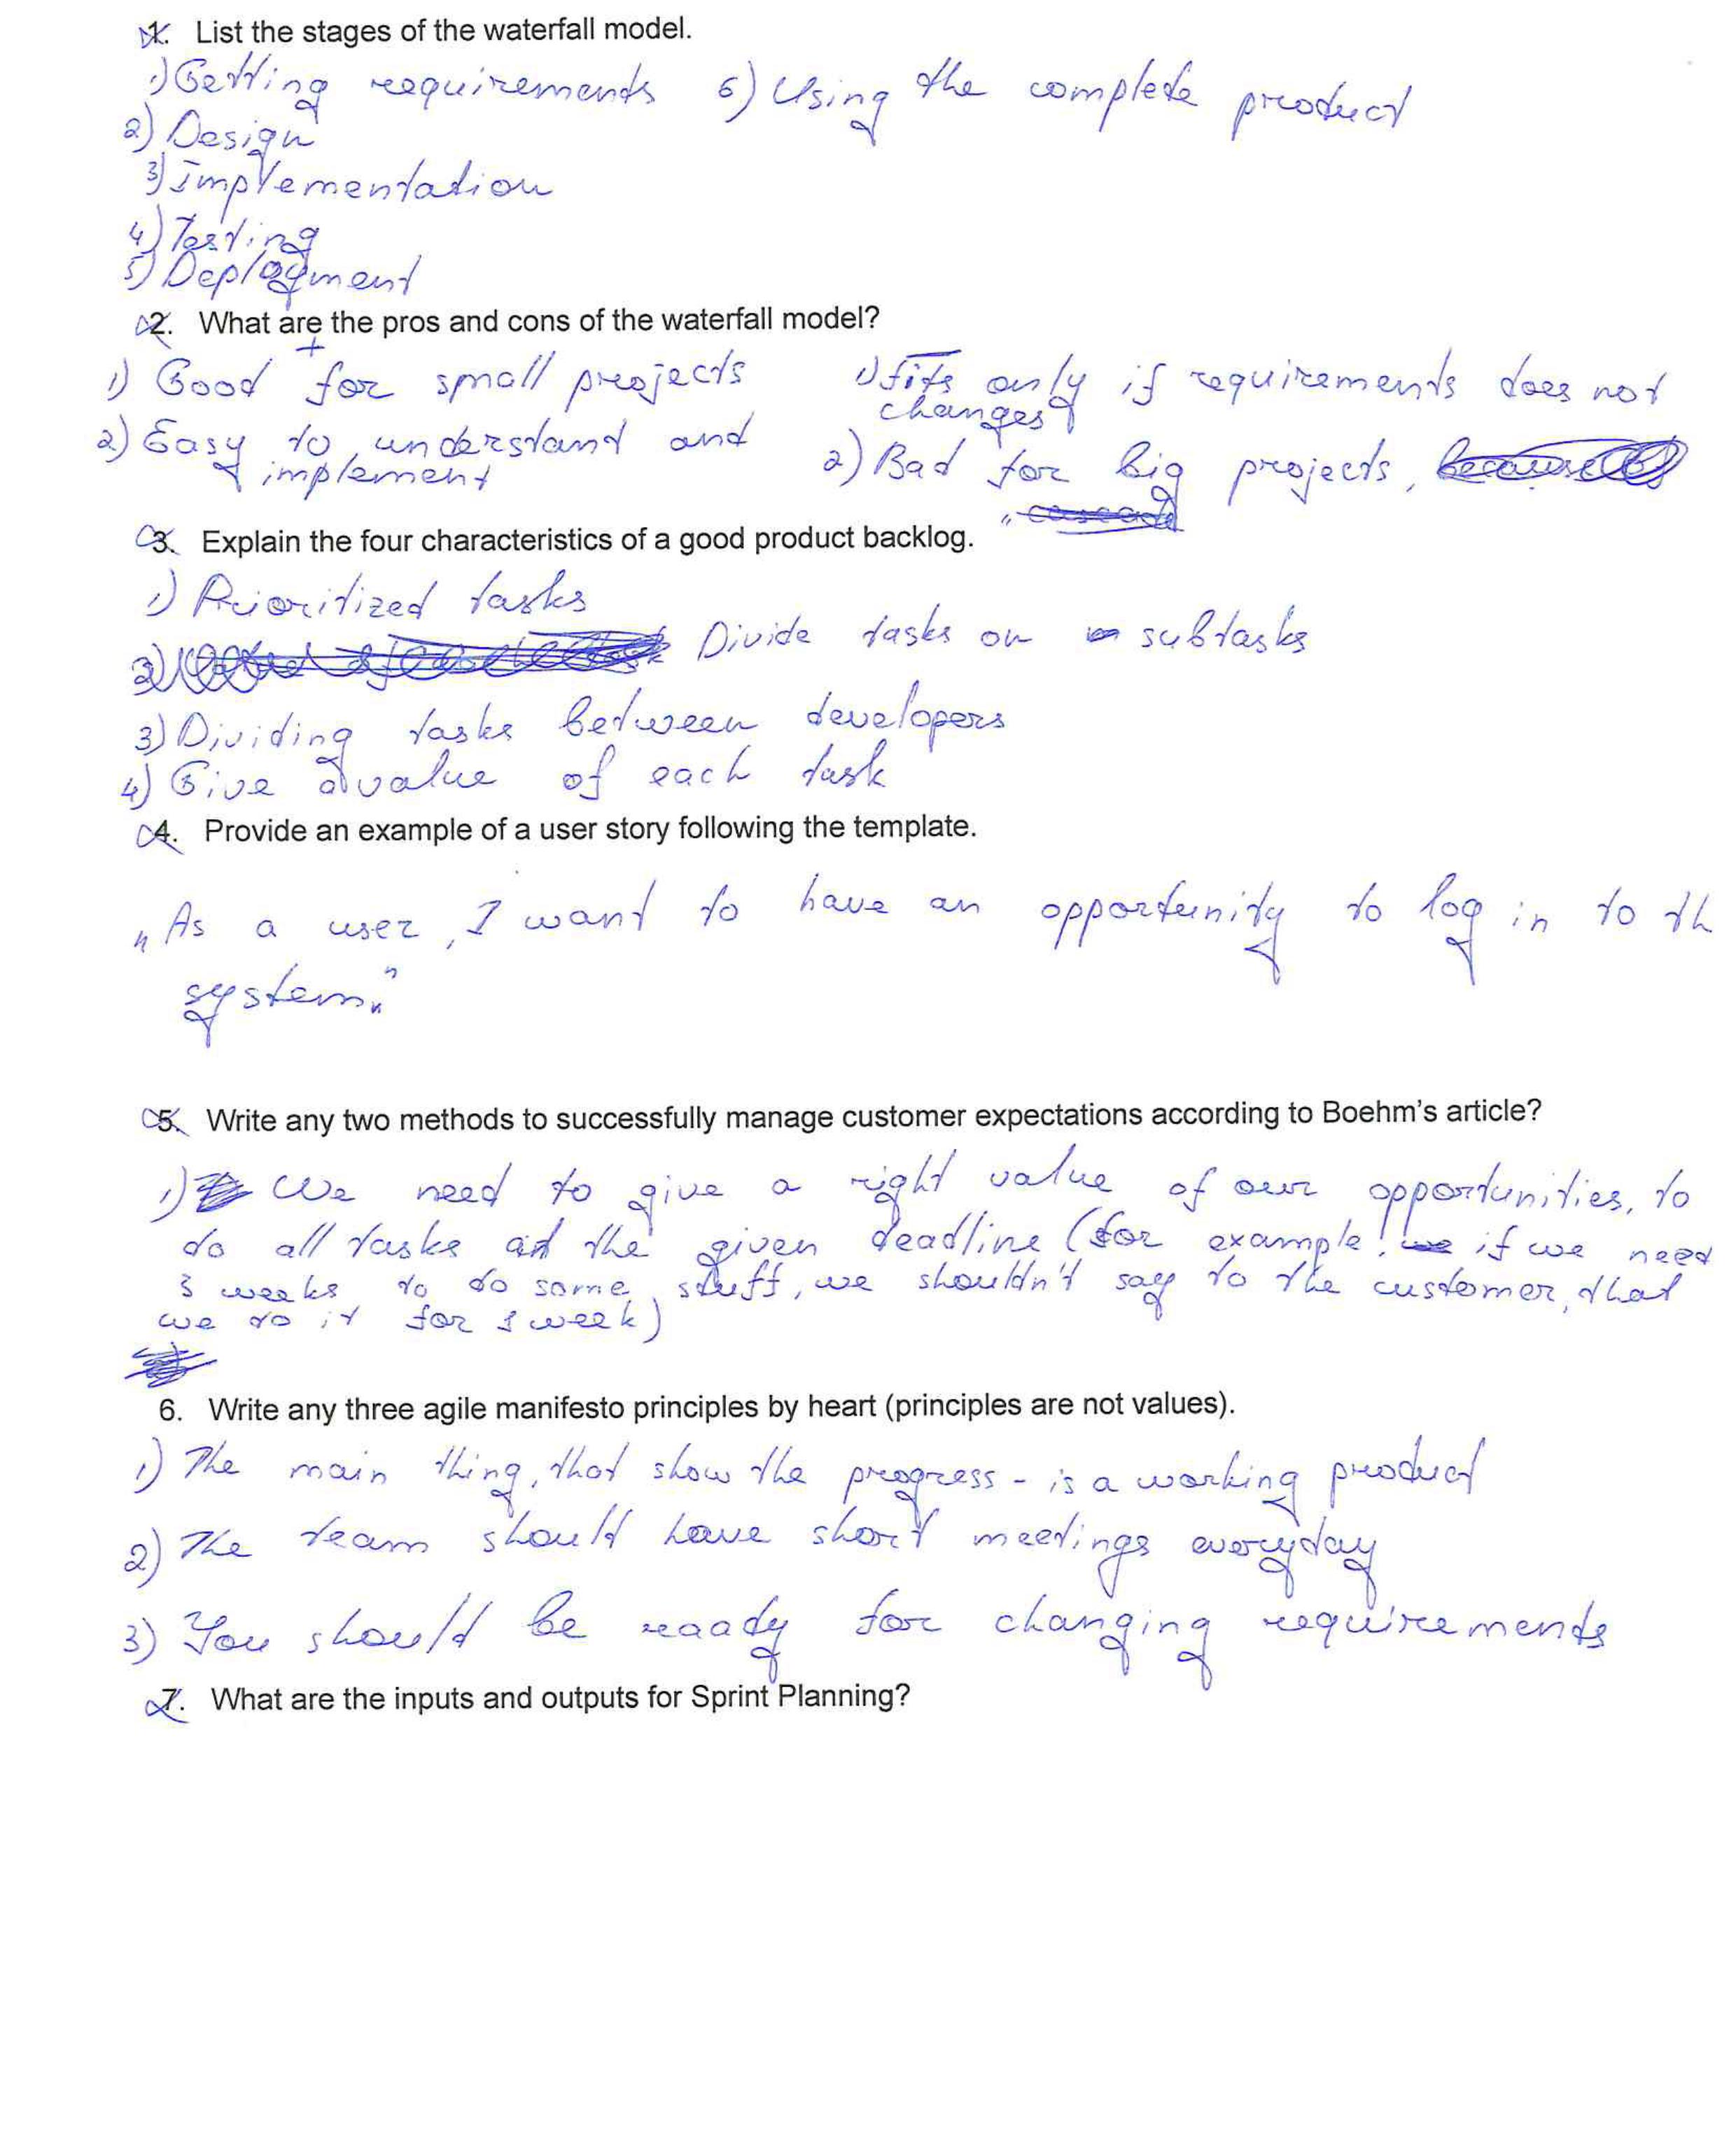 1. List the stages of the waterfall model.
1) Getting requirements 6) Using the complete product
2) Design
3) Implementation
4) Testing
5) Deployment
2. What are the pros and cons of the waterfall model?
+ –
1) Good for small projects 1) fits only if requirements does not
changes
2) Easy to understand and 2) Bad for big projects,
implement
3. Explain the four characteristics of a good product backlog.
1) Prioritized tasks
2) Divide tasks on subtasks
3) Dividing tasks between developers
4) Give a value of each task
4. Provide an example of a user story following the template.
„As a user, I want to have an opportunity to log in to th
system."
5. Write any two methods to successfully manage customer expectations according to Boehm's article?
1) We need to give a right value of our opportunities, to
do all tasks at the given deadline (for example, if we need
3 weeks to do some stuff, we shouldn't say to the customer, that
we do it for 1 week)
6. Write any three agile manifesto principles by heart (principles are not values).
1) The main thing, that show the progress - is a working product
2) The team should have short meetings everyday
3) You should be ready for changing requirements
7. What are the inputs and outputs for Sprint Planning?